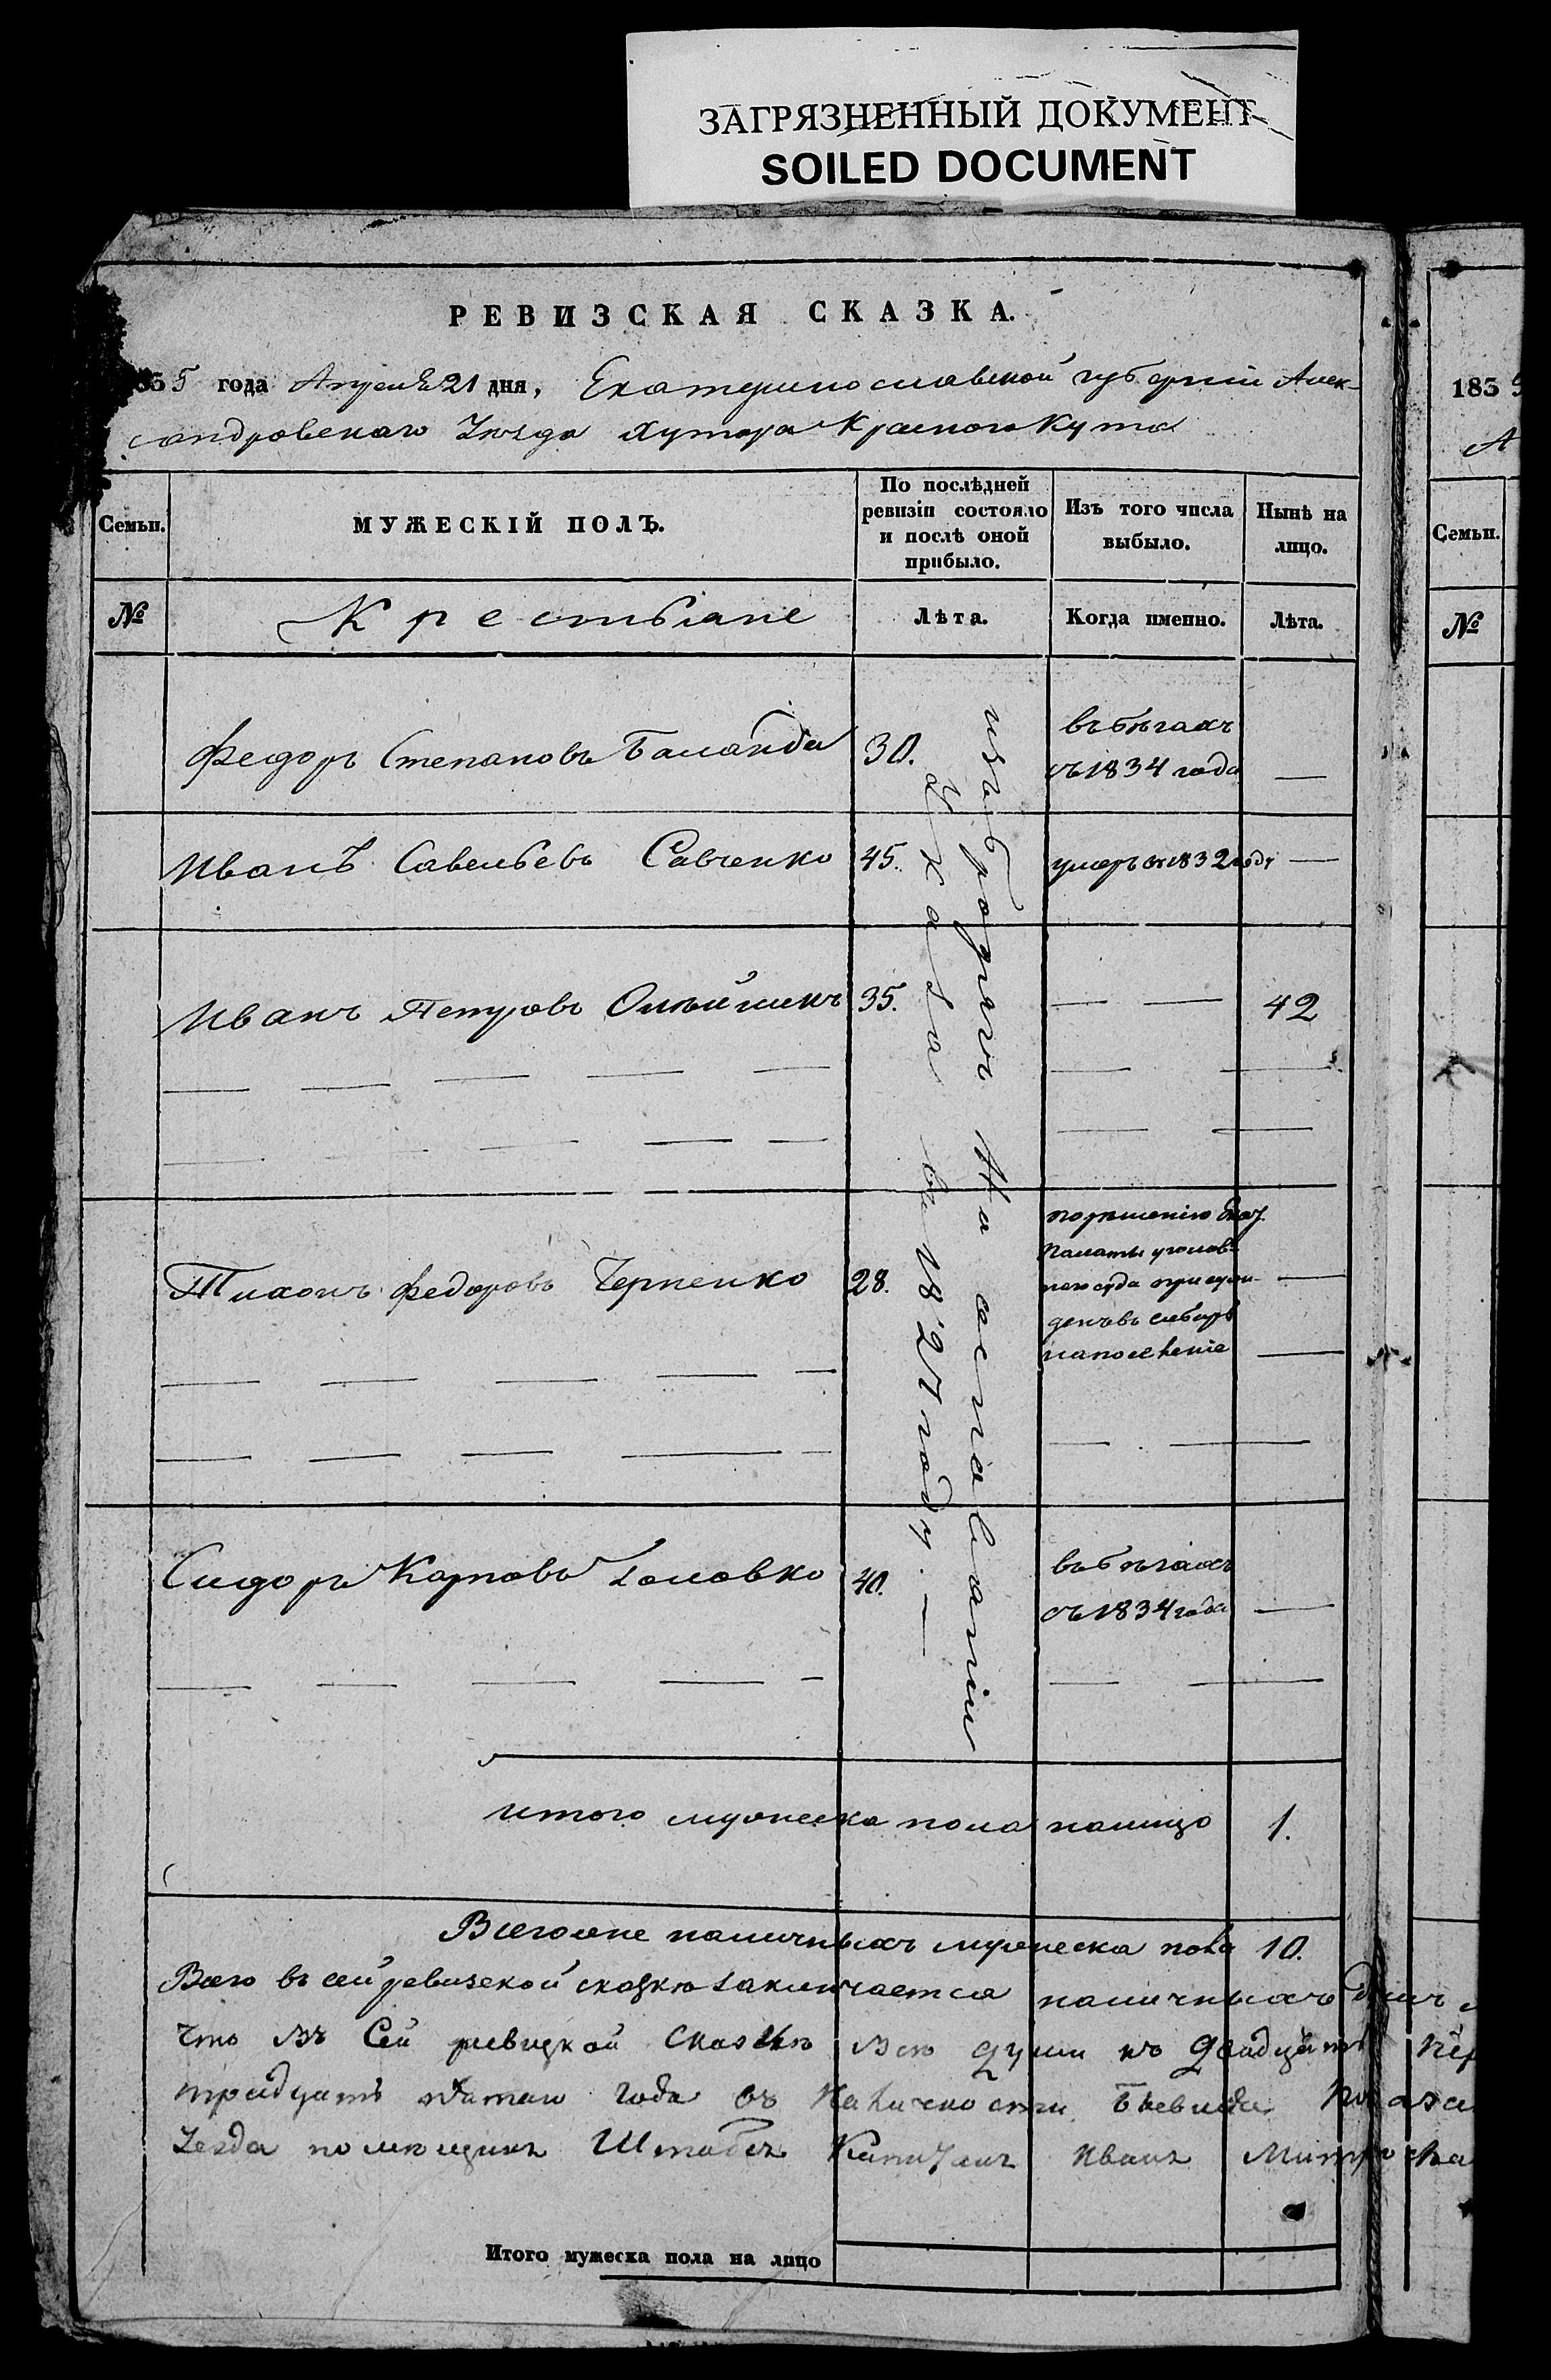 ЗАГРЯЗНЕННЫЙ ДОКУМЕНТ
SOILED DOCUMENT
РЕВИЗСКАЯ СКАЗКА.
35 года Апреля 21 дня, Екатеринославской губернiи Алек-
сандровскаго Уезда Хутора Красного Кута
Семьи.
МУЖЕСКІЙ ПОЛЪ.
По послѣдней ревизіи состояло и послѣ оной прибыло.
Изъ того числа выбыло.
Нынѣ на лицо.
№
Крестьяне
Лѣта.
Когда именно.
Лѣта.
Федоръ Степановъ 30.
въ бѣгахъ
съ 1834 года —
Иванъ Савельевъ Савченко 45. умеръ въ 1832 году —
Иванъ Петровъ Олѣйникъ 35. — — 42
Тихонъ Федоровъ Черненко 28.
порѣшенію
Палаты уголов-
наго суда присуж-
денъ въ Сибирь
на поселеніе —
Сидоръ Карповъ Головко 40.
въ бѣгахъ
съ 1834 года —
изъ бродягъ На основаніи
Указа въ 1827 году. —
итого мужеска пола налицо 1.
Всего же наличныхъ мужеска пола 10.
Всего въ сей ревизской сказкѣ заключается наличныхъ
что въ Сей ревизкой Сказкѣ Всѣ души къ двадцать
тридцать пятаго Года въ Наличности
Уезда помѣщикъ Штабсъ Капитанъ Иванъ
Итого мужеска пола на лицо
183
А
Семьи.
№